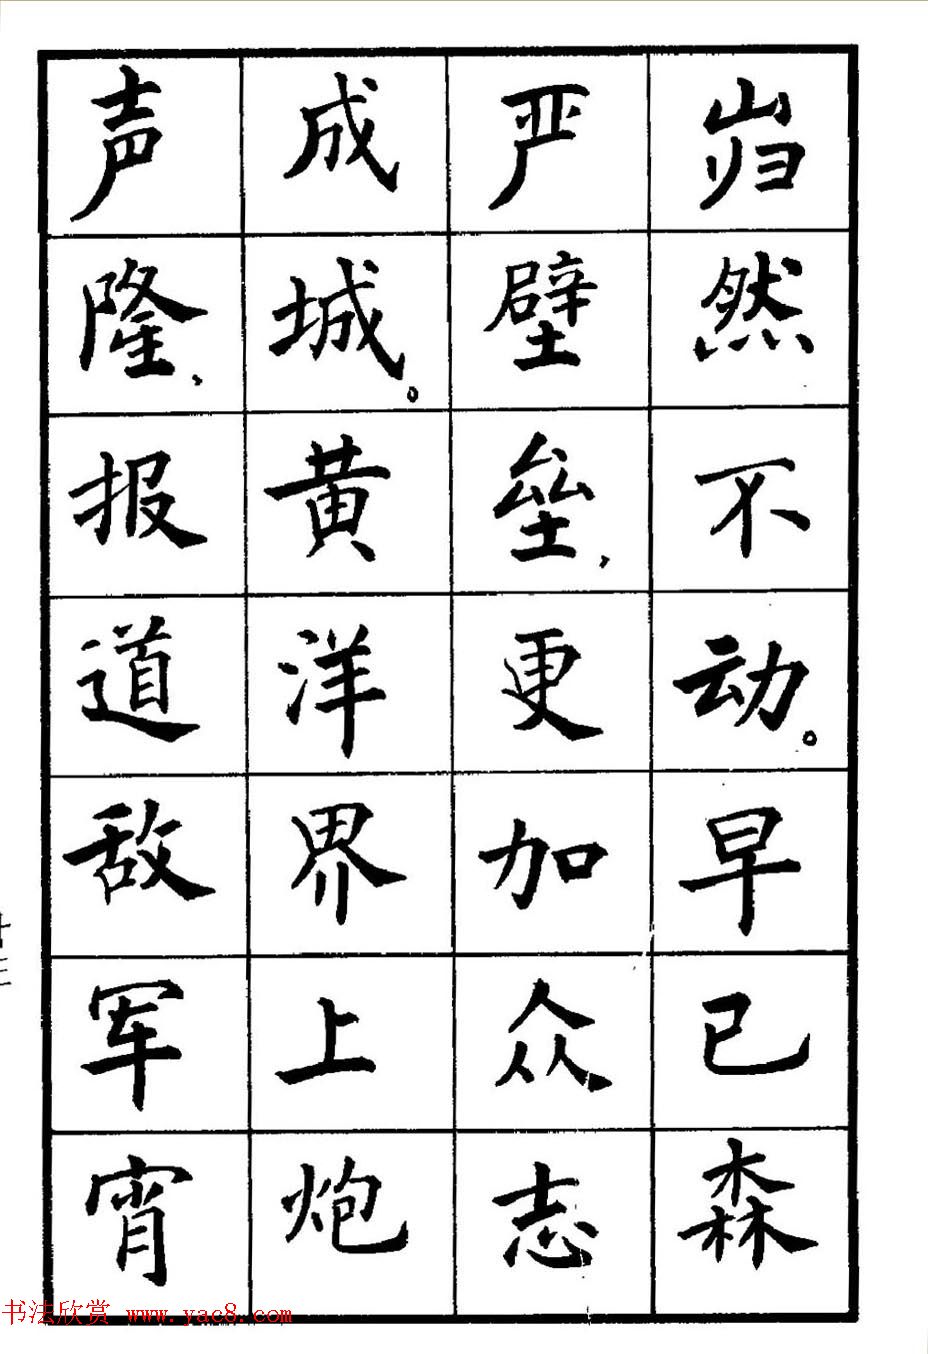 岿然不动。早已森
严壁垒，更加众志
成城。黄洋界上炮
声隆，报道敌军宵
十三
书法欣赏 www.yac8.com